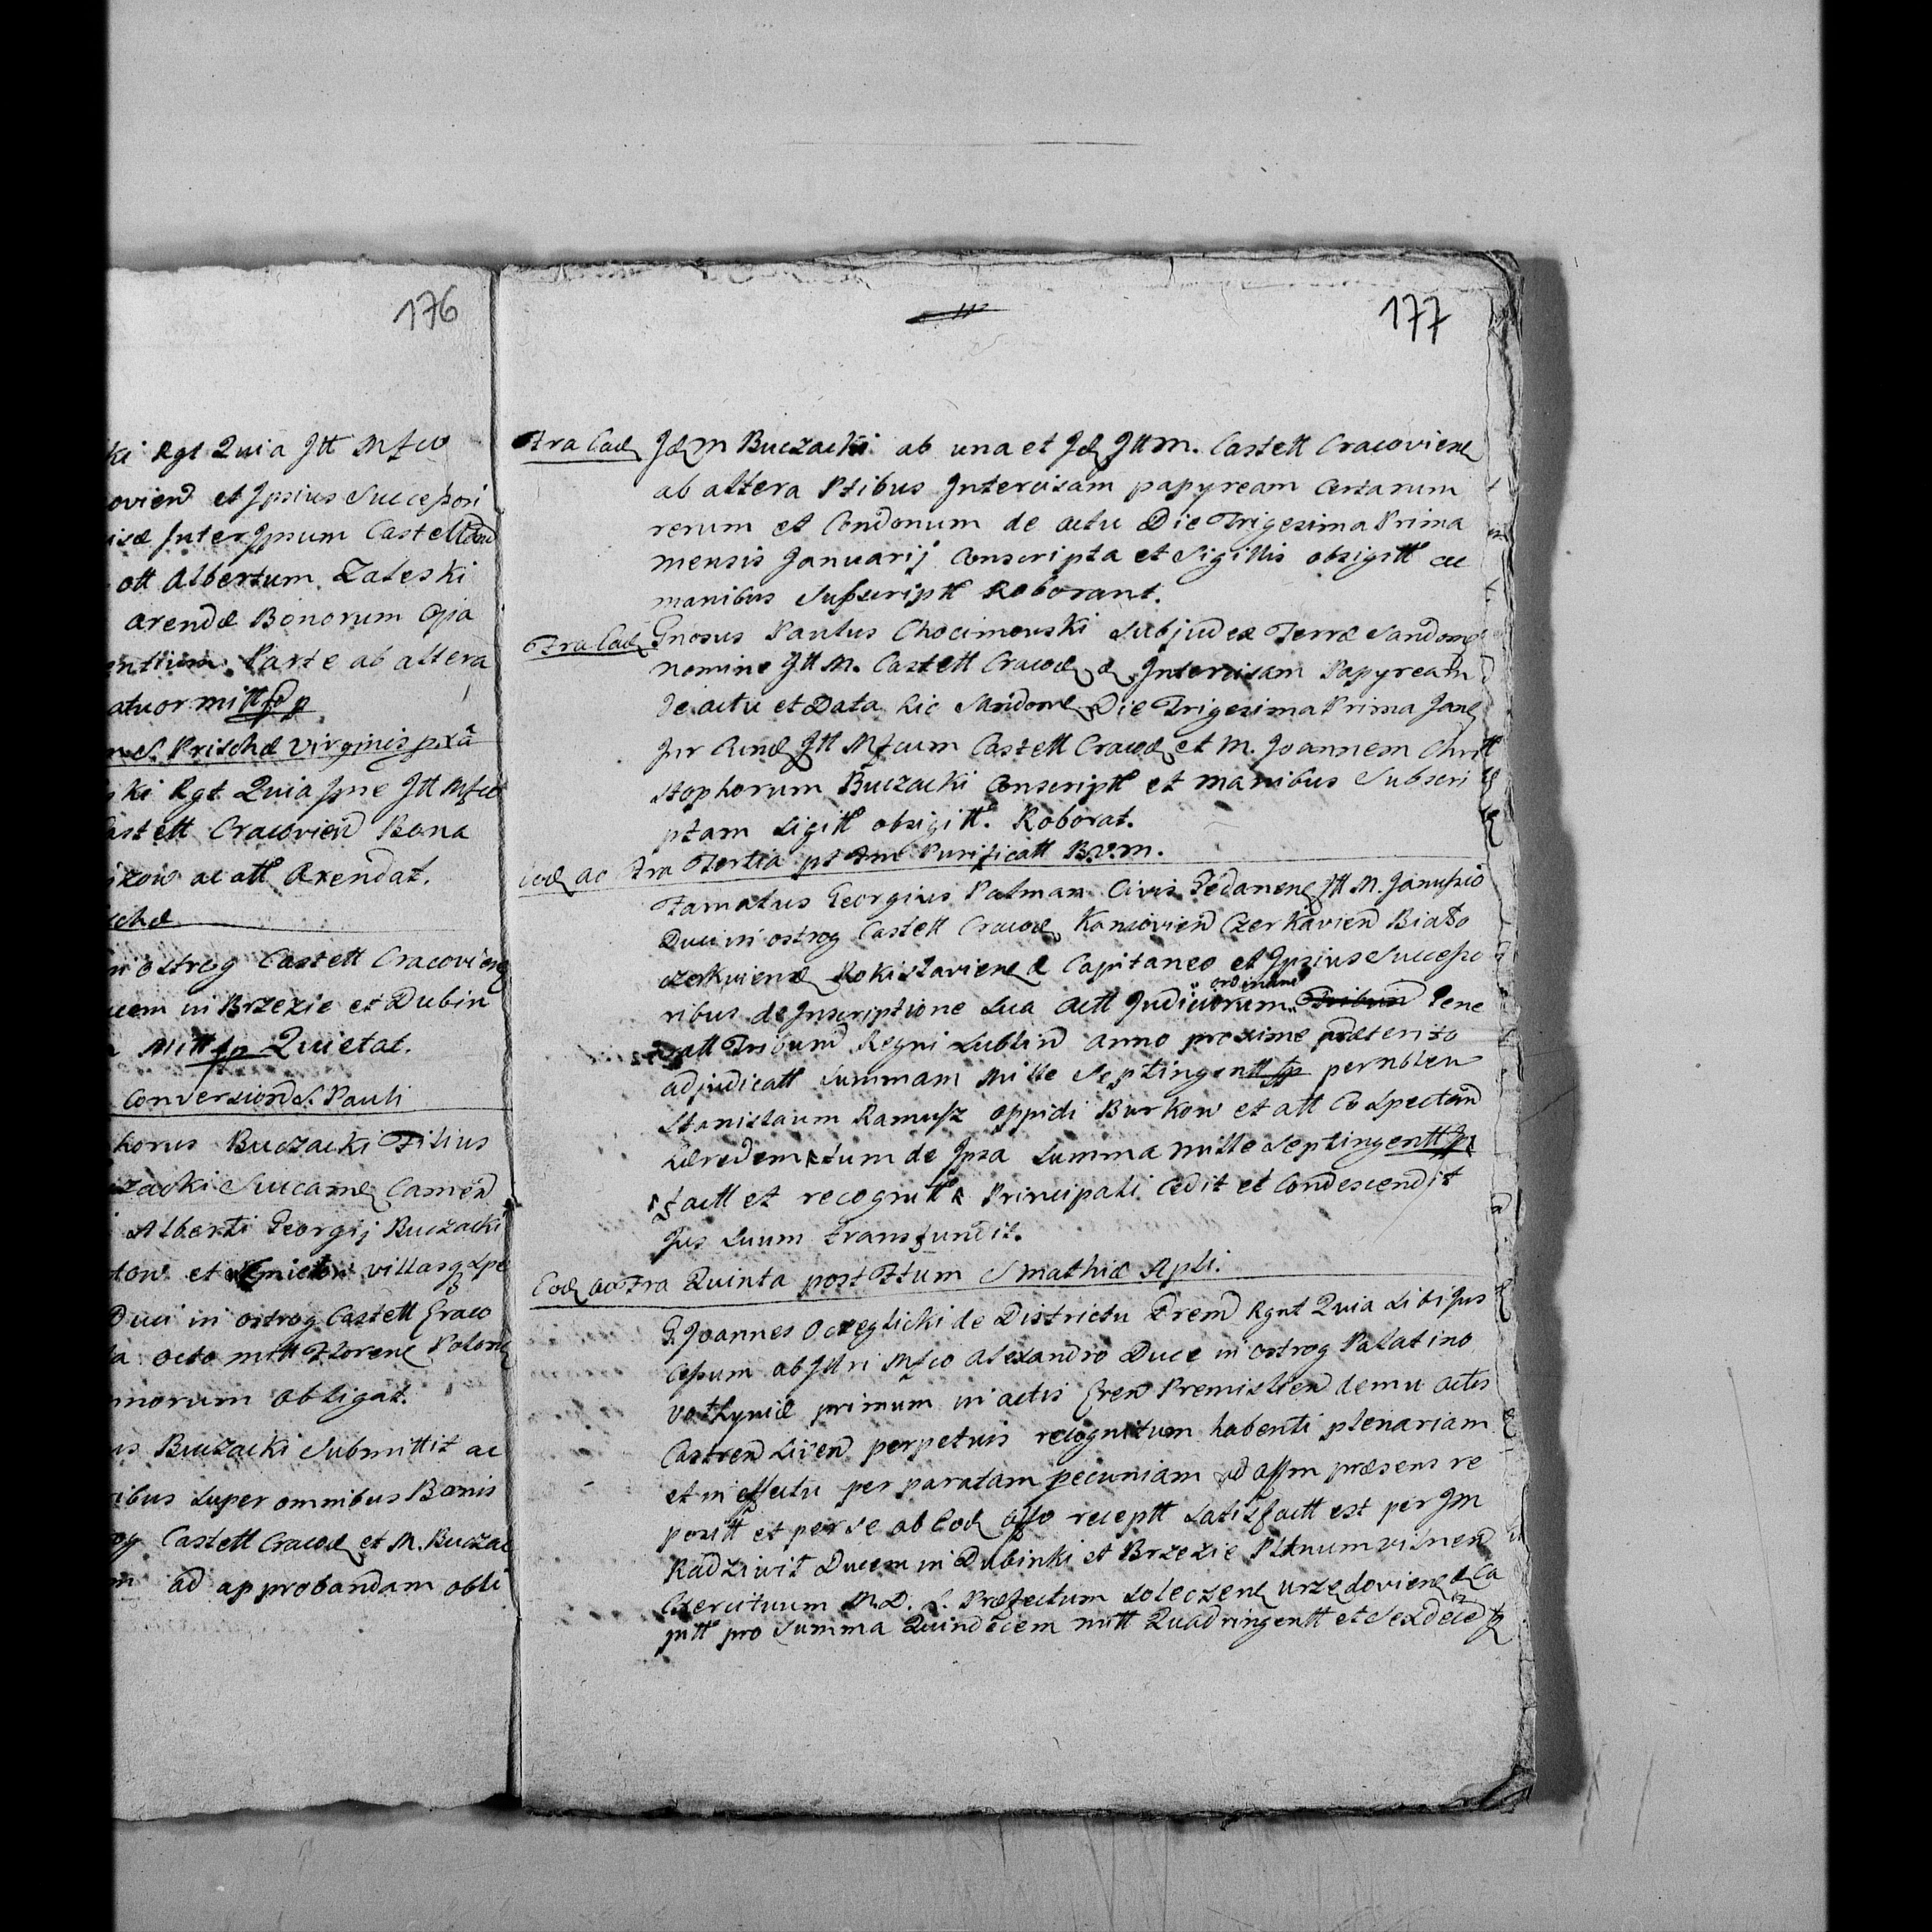 176
ki Rgt Quia Jtt Mfco
ovien et Ipsius Successori
isæ Inter Ipsum Castellan
ott Albertum Zaleski
arendæ Bonorum Opa
entium Parte ab altera
atuor mitt fp
S. Prischæ virginis pxâ
ki Rgt Quia Ipse Jtt Mfco
Castett Cracovien Bona
kow ac att Arendat.
schæ
in ostrog Castett Cracoviens
ucem in Brzezie et Dubin
Mitt fp Quietat.
Conversion S. Pauli
horus Buczacki Filius
zacki Succame Camen
Alberti Georgij Buczacki
tow et villasq Spe
Duci in ostrog Castett Craco
a octo mitt Florene Polone
nnorum obligat.
us Buczacki Submittit ac
ribus Super omnibus Bonis
og Castett Cracoæ et M. Buczac
m ad approbandam obli
177
Fra Ead Jdm Buczacki ab una et Jd Jtt M. Castett Cracoviene
ab altera Ptibus Intercisam papyream Certarum
rerum et Condonum de actu Die Trigesima Prima
mensis Januarij Conscripta et Sigillis obsigitt ac
manibus Subscriptt Roborant.
Fra Ead Gnosus Paulus Chocimowski Subjudex Terræ Sandome
nomine Jtt M. Castett Cracoæ & Intercisam Papyream
de actu et Data hic Sandome Die Trigesima Prima Jane
Inr Jtt Mfcum Castett Cracoæ et M. Joannem Chri
stophorum Buczacki Conscriptt et manibus Subscri
ptam Sigitt obsigitt. Roborat.
Eod ao Fra Tertia pt Ftm Purificatt B.V.M.
Famatus Georgius Patman Civis Gedanene Jtt M. Janussio
Duci in ostrog Castett Cracoæ, Kaniovien Czerkavien Biało
czerkviene Rokistaviene & Capitaneo et Ipsius Successo
ribus de Inscriptione Sua actt Judiciorum ordinano Tribun Gene
ratt Tribunal Regni Lublin anno proxime præterito
adjudicatt Summam Mille Septingentt fp per Nblem
Stanislaum Ramusz oppidi Burkow et att eo Spectan
hæredem tum de Ipsa Summa mille Septingentt fp
factt et recognitt Principali Cedit et Condescendit
Jus Suum transfundit.
Eod ao Fra Quinta post Ftum S Mathiæ Apli.
G. Joannes Oczeglicki de Districtu Prem Rgnt Quia Sibi Jus
Cessum ab Jttri Mfco Alexandro Duce in ostrog Palatino
Volhyniæ primum in actis Premislien demu actis
Castren perpetuis recognitum habenti plenariam
et in effectu per paratam pecuniam ad præsens re
positt et per se ab Eod offo receptt Satisfactt est per Jm
Radziwit Ducem in Dubinki et Brzezie Vilnen
Exercituum M.D.L. Præfectum Soleczene urzędoviene & Ca
pitt pro Summa Quindecem mitt Quadringentt et Sexdece fp